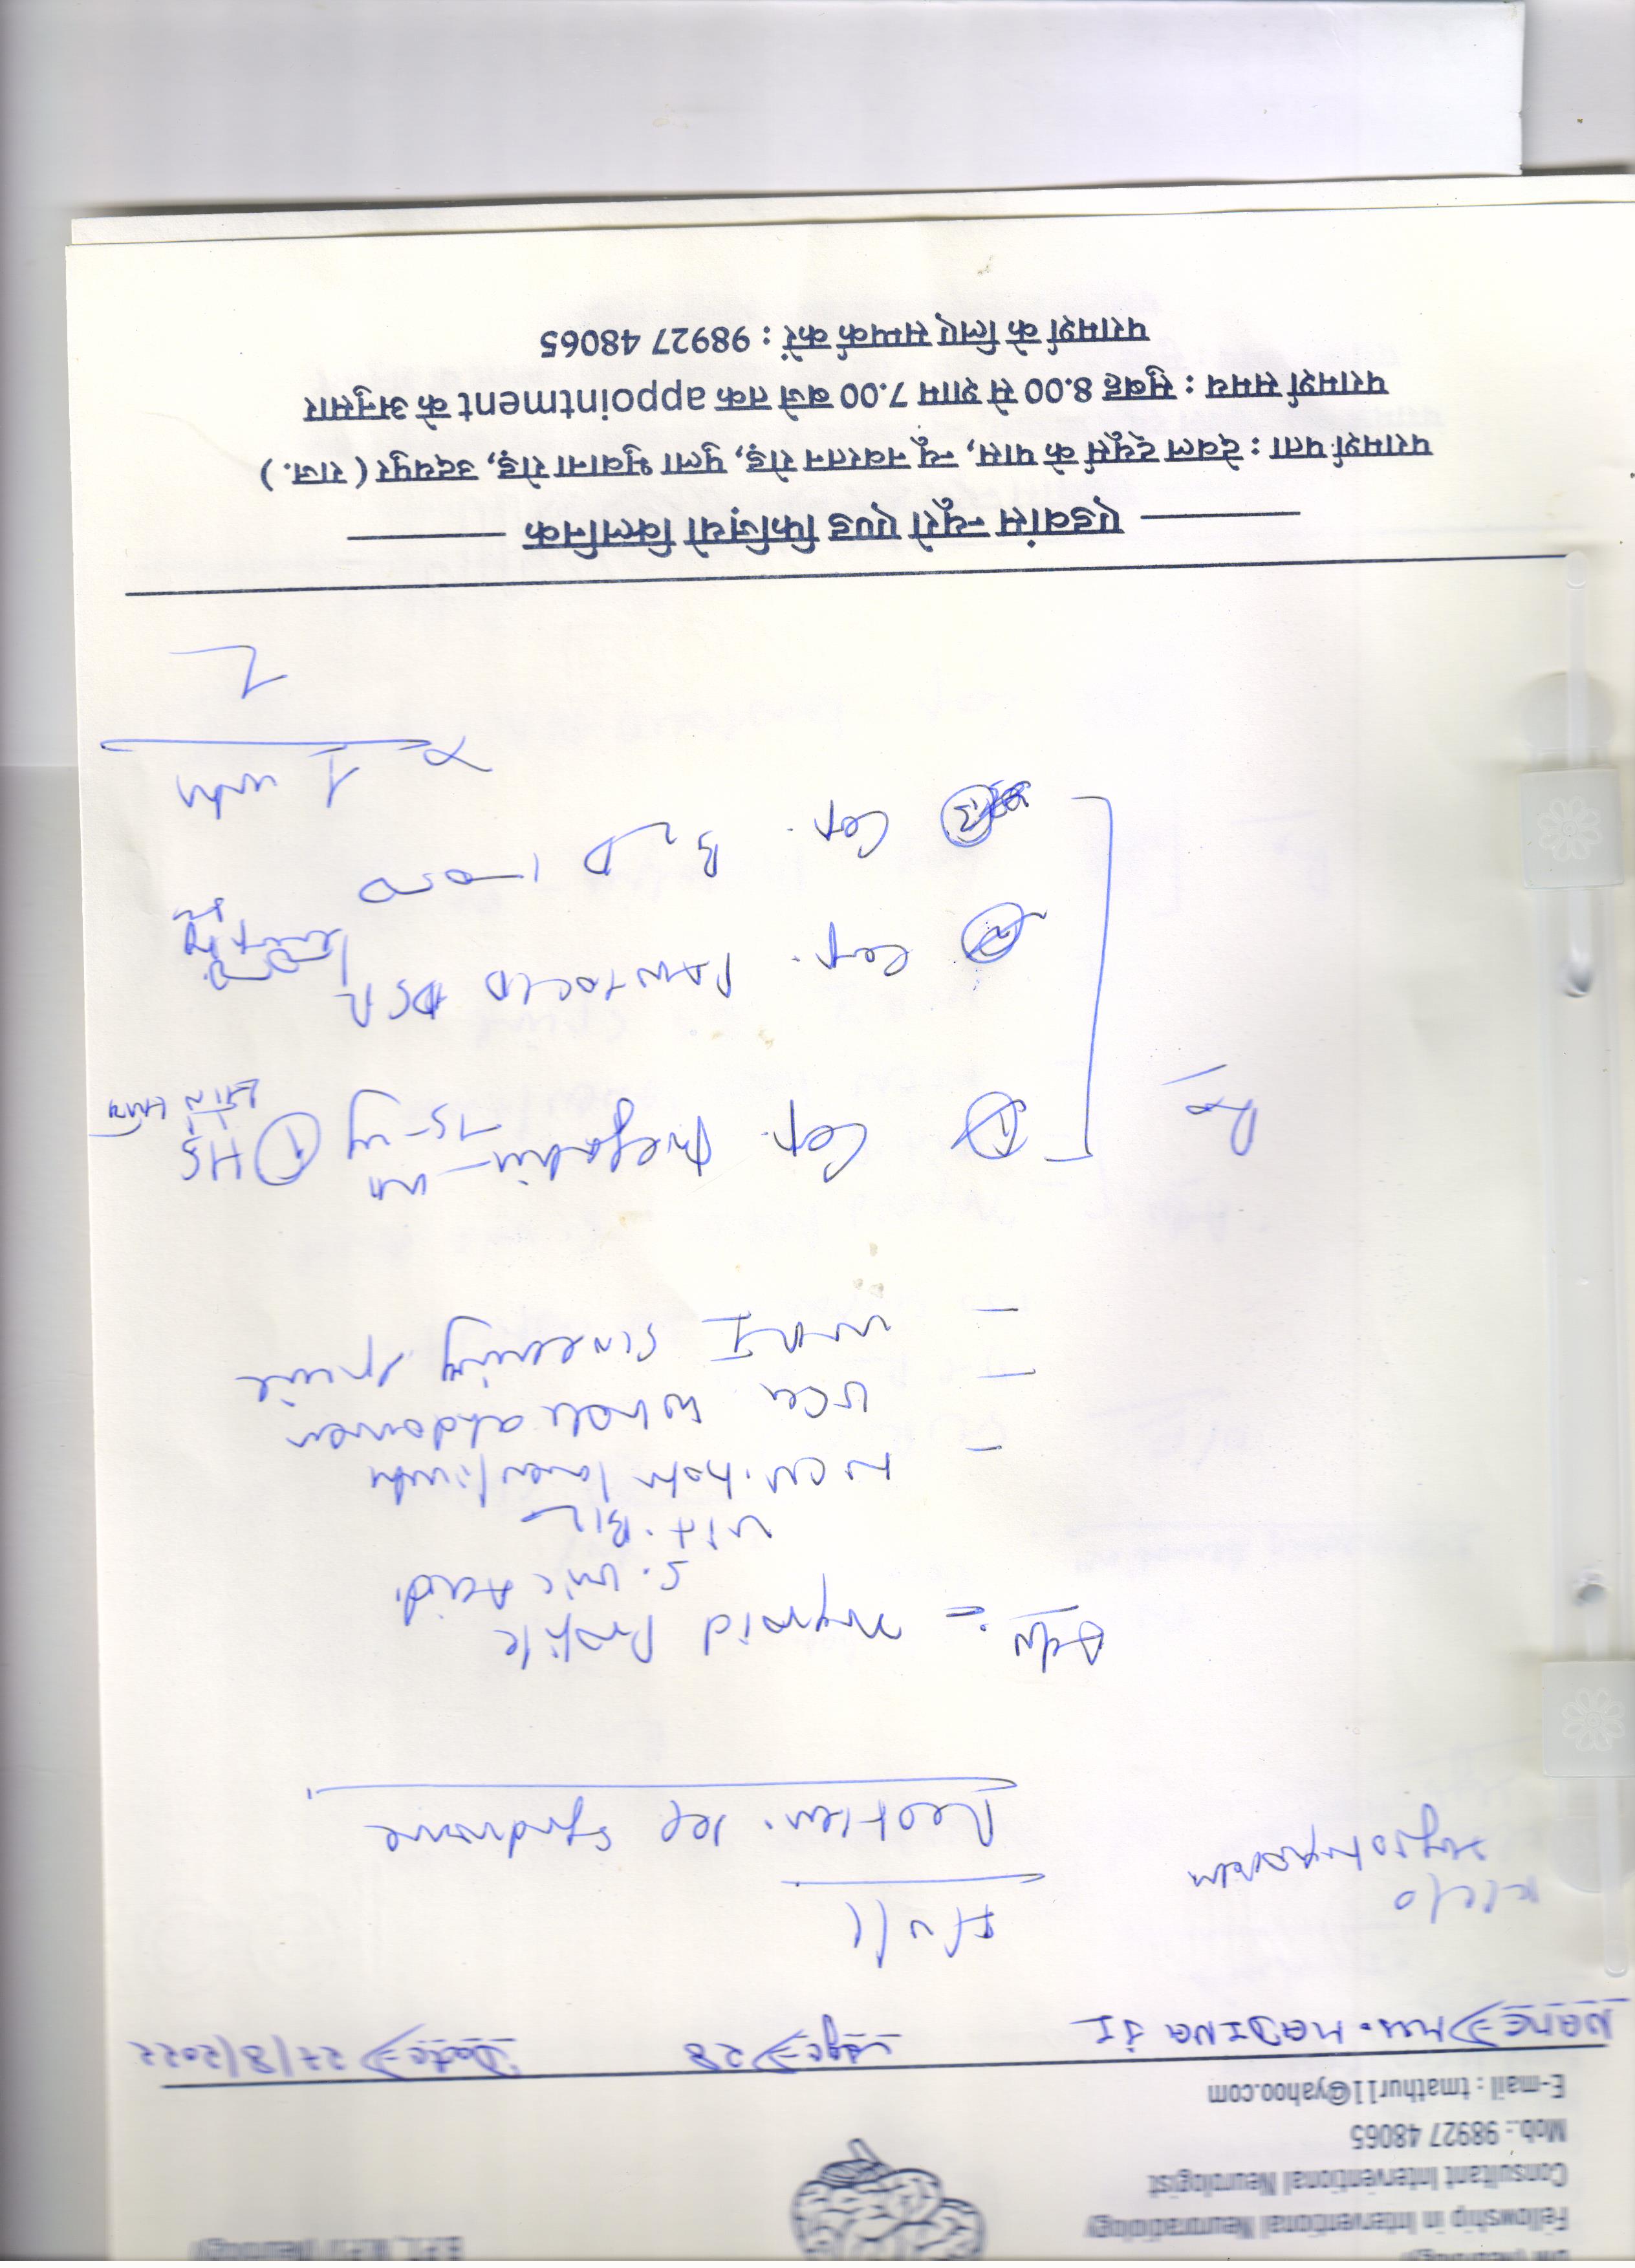 B.P.T., M.P.T (Neurology)
Fellowship in Interventional Neuroradiology
Consultant Interventional Neurologist
Mob.: 98927 48065
E-mail : tmathur11@yahoo.com
NAME→ Mrs. HADINA JI Age→ 28 Date→ 27/8/2022
K/c/o
Restless leg syndrome
Adv := Thyroid Profile
S. Uric Acid.
Vit. B12
- NCV. both lower limbs
- USG whole abdomen
- MRI screening spine
Rx
① Cap. Pregabalin 75 mg ① HS
② Cap. PANTOCID DSR
③ Cap. B2D 1-0-0
x 1 mth
एडवांस न्यूरो एण्ड फिजियो क्लिनिक
परामर्श पता : देवल ट्यूर्स के पास, न्यू नवरतन रोड़, पुला भुवाना रोड़, उदयपुर ( राज. )
परामर्श समय : सुबह 8.00 से शाम 7.00 बजे तक appointment के अनुसार
परामर्श के लिए सम्पर्क करें : 98927 48065